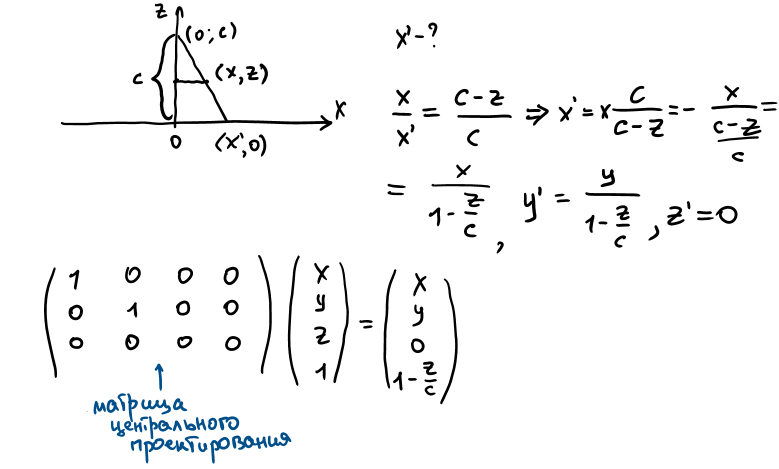 z
(0; c)
c
(x, z)
x
0
(x', 0)
x' - ?
x/x' = (c-z)/c ⇒ x' = x c/(c-z) = - x/((c-z)/c) =
= x/(1 - z/c), y' = y/(1 - z/c), z' = 0
( 1 0 0 0 ) ( x ) = ( x )
( 0 1 0 0 ) ( y ) ( y )
( 0 0 0 0 ) ( z ) ( 0 )
( 1 ) ( 1 - z/c )
↑
матрица
центрального
проектирования